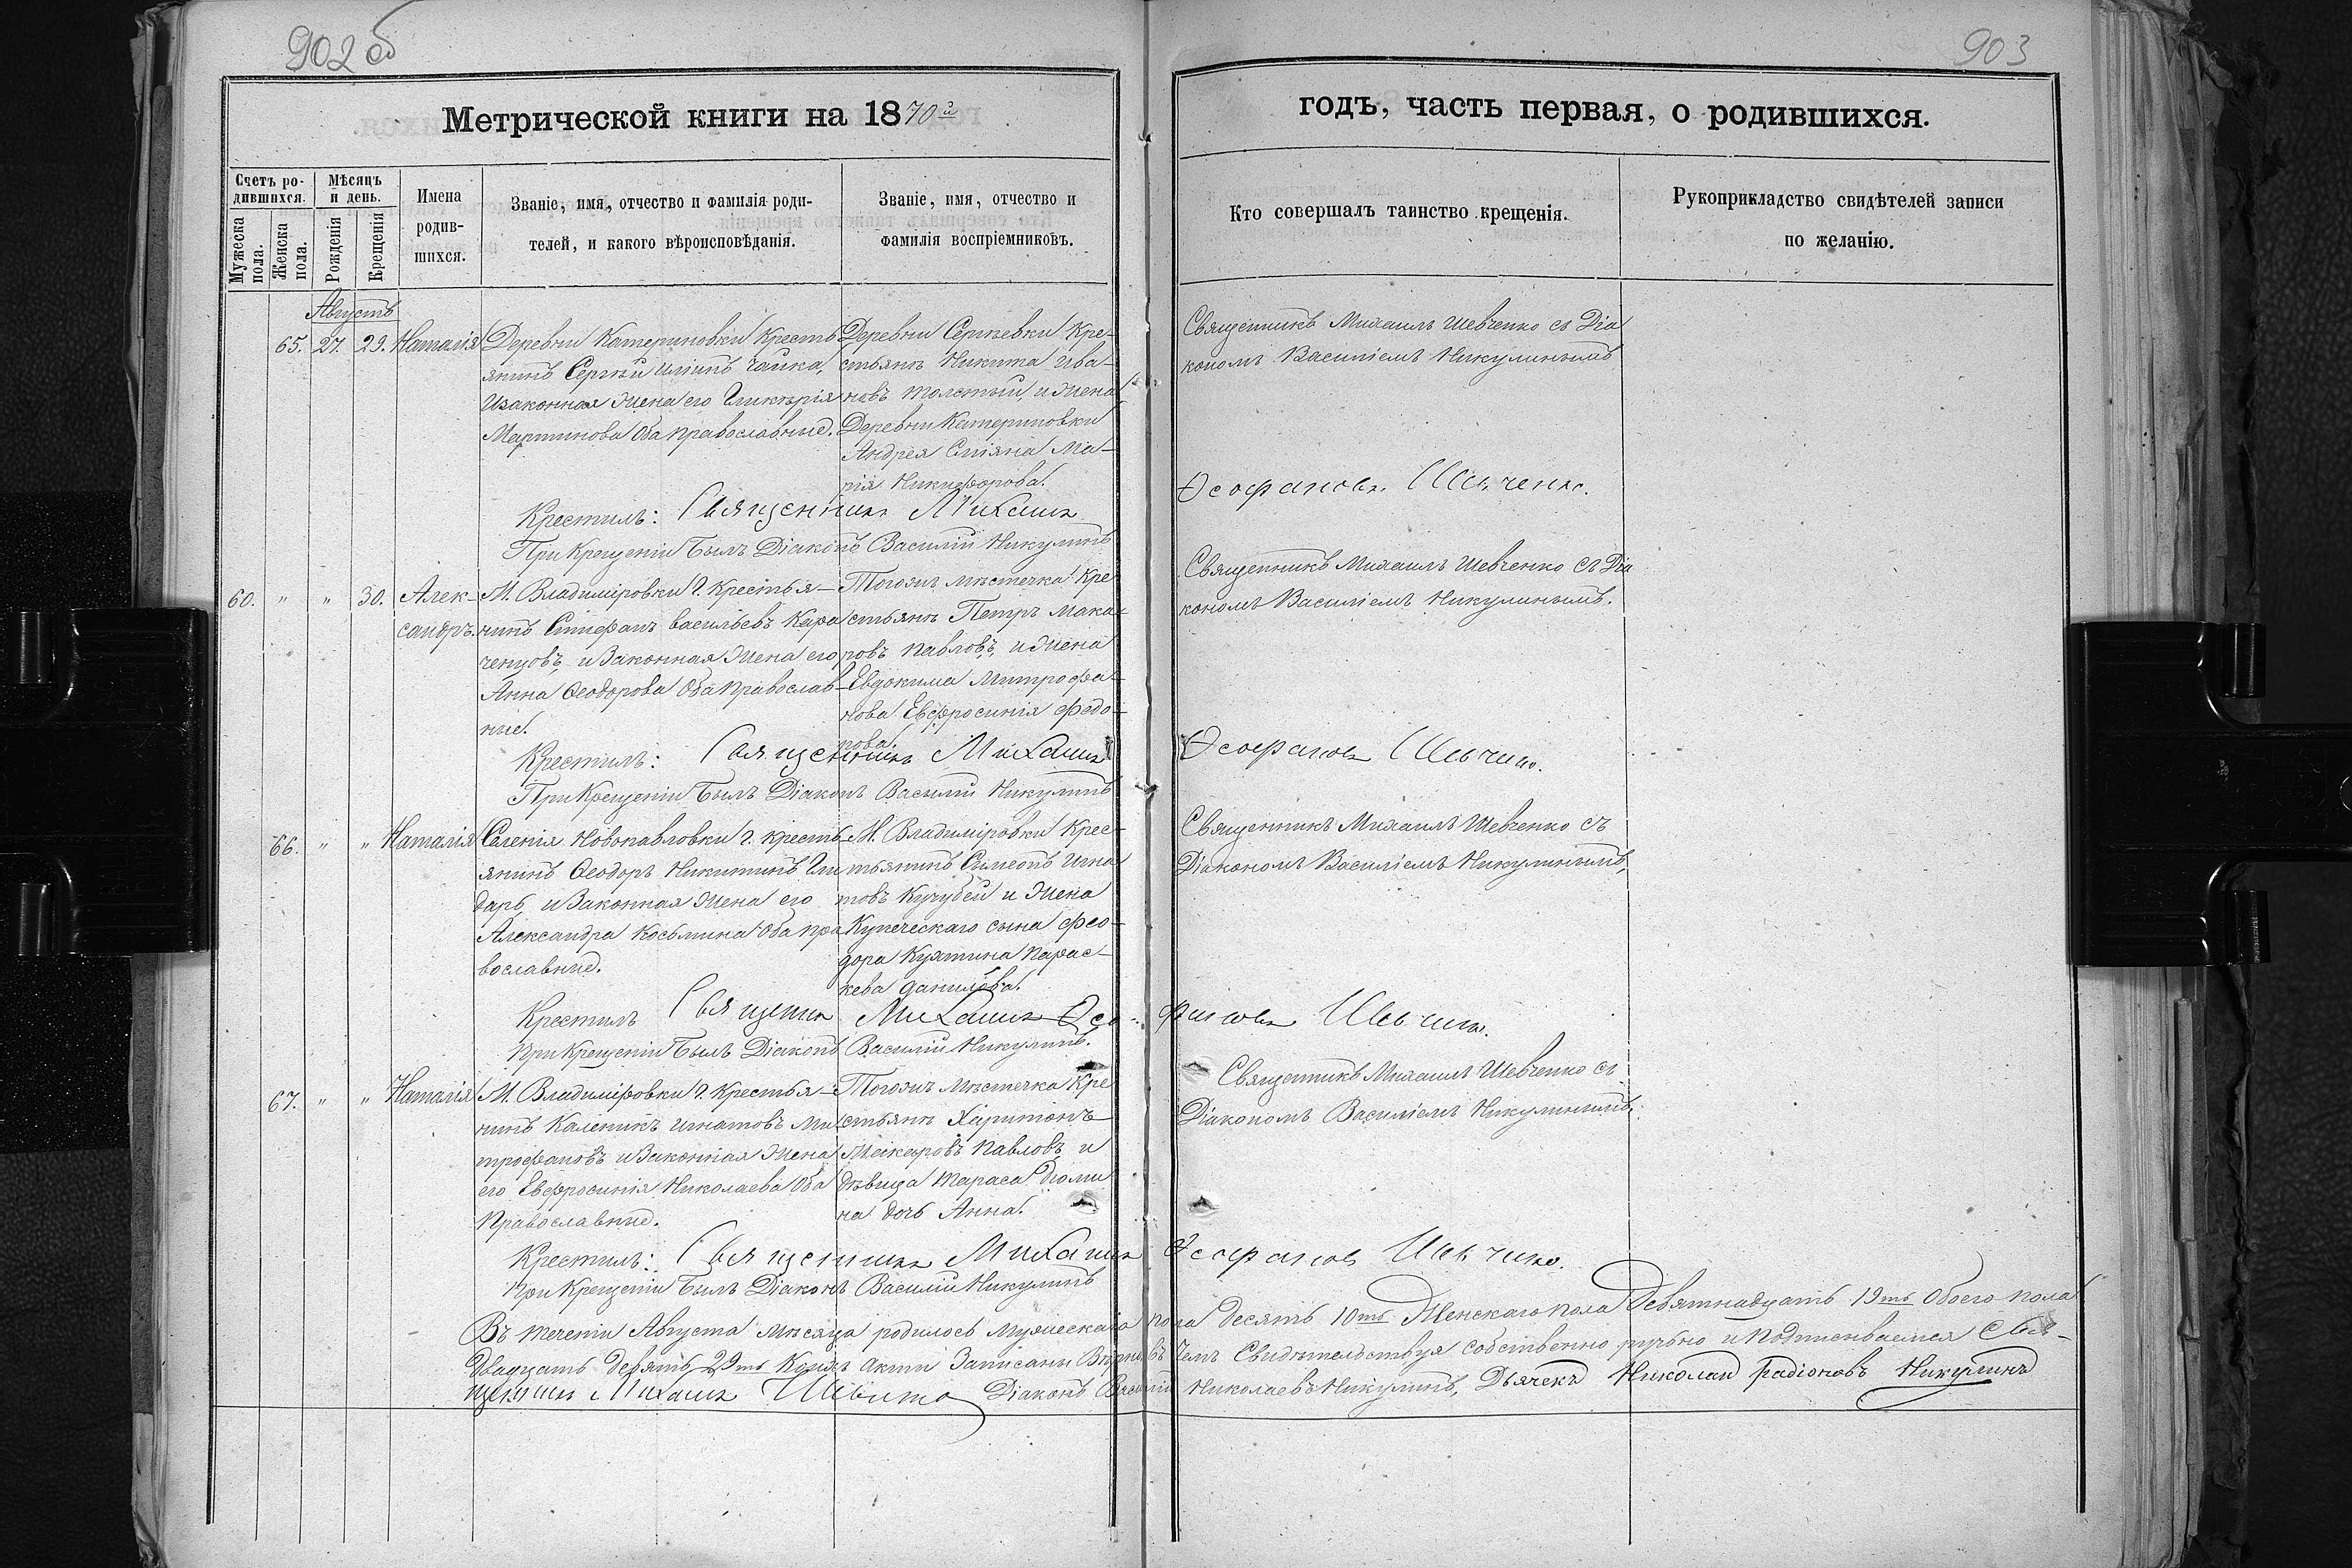 902 об
903
Метрической книги на 1870й
годъ, часть первая, о родившихся.
Счетъ ро-
дившихся.
Мужеска
пола.
Женска
пола.
Мѣсяцъ
и день.
Рожденія
Крещенія
Имена
родив-
шихся.
Званіе, имя, отчество и фамилія роди-
телей, и какого вѣроисповѣданія.
Званіе, имя, отчество и
фамилія воспріемниковъ.
Кто совершалъ таинство крещенія.
Рукоприкладство свидѣтелей записи
по желанію.
Августъ
65. 27. 29. Наталія
Деревни Катериновки Кресть
янинъ Сергѣй Чайка,
и законная жена его Гликерія
Мартинова Оба православные.
Деревни Сергѣевки Кре-
стьянъ Никита Ива-
новъ Толстый, и жена
Деревни Катериновки
Андрея Ма-
рія Никифорова.
Священникъ Михаилъ Шевченко съ Діа
кономъ Василіемъ Никулинымъ
Крестилъ: Священникъ Михаилъ Ѳеофановъ Шевченко.
При Крещеніи былъ Діаконъ Василій Никулинъ
60. " " 30. Алек-
сандръ.
М. Владиміровки Г. Крестья-
нинъ Стефанъ Васильевъ Кара
ченцовъ, и законная жена его
Анна Ѳеодорова Оба православ-
ные.
Тогожъ мѣстечка Кре
стьянъ Петръ Мака-
ровъ Павловъ, и жена
Евдокима Митрофа-
нова Евфросинія Федо-
рова.
Священникъ Михаилъ Шевченко съ Діа
кономъ Василіемъ Никулинымъ.
Крестилъ: Священникъ Михаилъ Ѳеофановъ Шевченко.
При Крещеніи былъ Діаконъ Василій Никулинъ
66. " " Наталія
Селенія Новопавловки Г. Кресть
янинъ Ѳеодоръ Никитинъ Гли
дарь, и законная жена его
Александра Косьмина Оба пра
вославные.
М. Владиміровки Крес-
тьянинъ Сѵмеонъ Игна
товъ Кучубей и жена
Купеческаго сына Фео-
дора Парас-
кева Данилова.
Священникъ Михаилъ Шевченко съ
Діакономъ Василіемъ Никулинымъ,
Крестилъ Священникъ Михаилъ Ѳеофановъ Шевченко.
При Крещеніи былъ Діаконъ Василій Никулинъ.
67. " " Наталія
М. Владиміровки Г. Крестья-
нинъ Каленикъ Игнатовъ Ми
трофановъ и законная жена
его Евфросинія Николаева Оба
Православные.
Тогожъ мѣстечка Кре
стьянъ Харитонъ
Макаровъ Павловъ, и
дѣвица Тараса Дюми
на дочь Анна.
Священникъ Михаилъ Шевченко съ
Діакономъ Василіемъ Никулинымъ.
Крестилъ: Священникъ Михаилъ Ѳеофановъ Шевченко.
При Крещеніи былъ Діаконъ Василій Никулинъ
Въ теченіи Августа мѣсяца родилось мужескаго пола десять 10ть Женскаго пола Девятнадцать 19ть Обоего пола
Двадцать девять 29ть Коихъ акты Записаны Вѣрно, въ чемъ Свидѣтельствуя собственно ручно и подписываемся Свя-
щенникъ Михаилъ Шевченко Діаконъ Василій Николаевъ Никулинъ, Дьячекъ Николай Радіоновъ Никулинъ